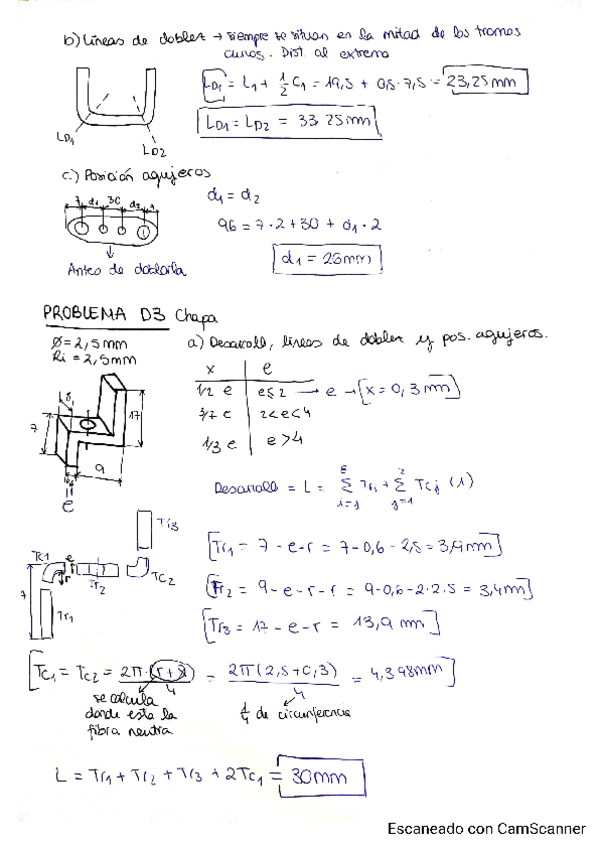 b) Líneas de doblez → siempre se situan en la mitad de los tramos
curvos. Dist. al extremo
LD1 = L1 + 1/2 C1 = 19,5 + 0,5 · 7,5 = 23,25mm
LD1 = LD2 = 33,25mm
LD1
LD2
c.) Posición agujeros
7 d1 30 d2 7
d1 = d2
96 = 7·2 + 30 + d1·2
d1 = 26mm
Antes de doblarla
PROBLEMA D3 Chapa
Ø = 2,5mm
Ri = 2,5mm
a) Desarroll, líneas de doblez y pos. agujeros.
x e
1/2 e e≤2 → e → [x = 0,3mm]
3/7 e 2<e<4
1/3 e e>4
7
17
9
e
Desarroll = L = Σ Tri + Σ Tcj (1)
i=1 j=1
Tr3
[Tr1 = 7 - e - r = 7 - 0,6 - 2,5 = 3,9mm]
Tc1 e
r
Tr2
Tc2
[Tr2 = 9 - e - r - r = 9 - 0,6 - 2·2.5 = 3,4mm]
7
Tr1
[Tr3 = 17 - e - r = 13,9 mm]
[Tc1 = Tc2 = 2π·(r+x)/4 = 2π(2,5+0,3)/4 = 4,398mm]
se calcula
donde esta la
fibra neutra
1/4 de circunferencia
L = Tr1 + Tr2 + Tr3 + 2Tc1 = 30mm
Escaneado con CamScanner